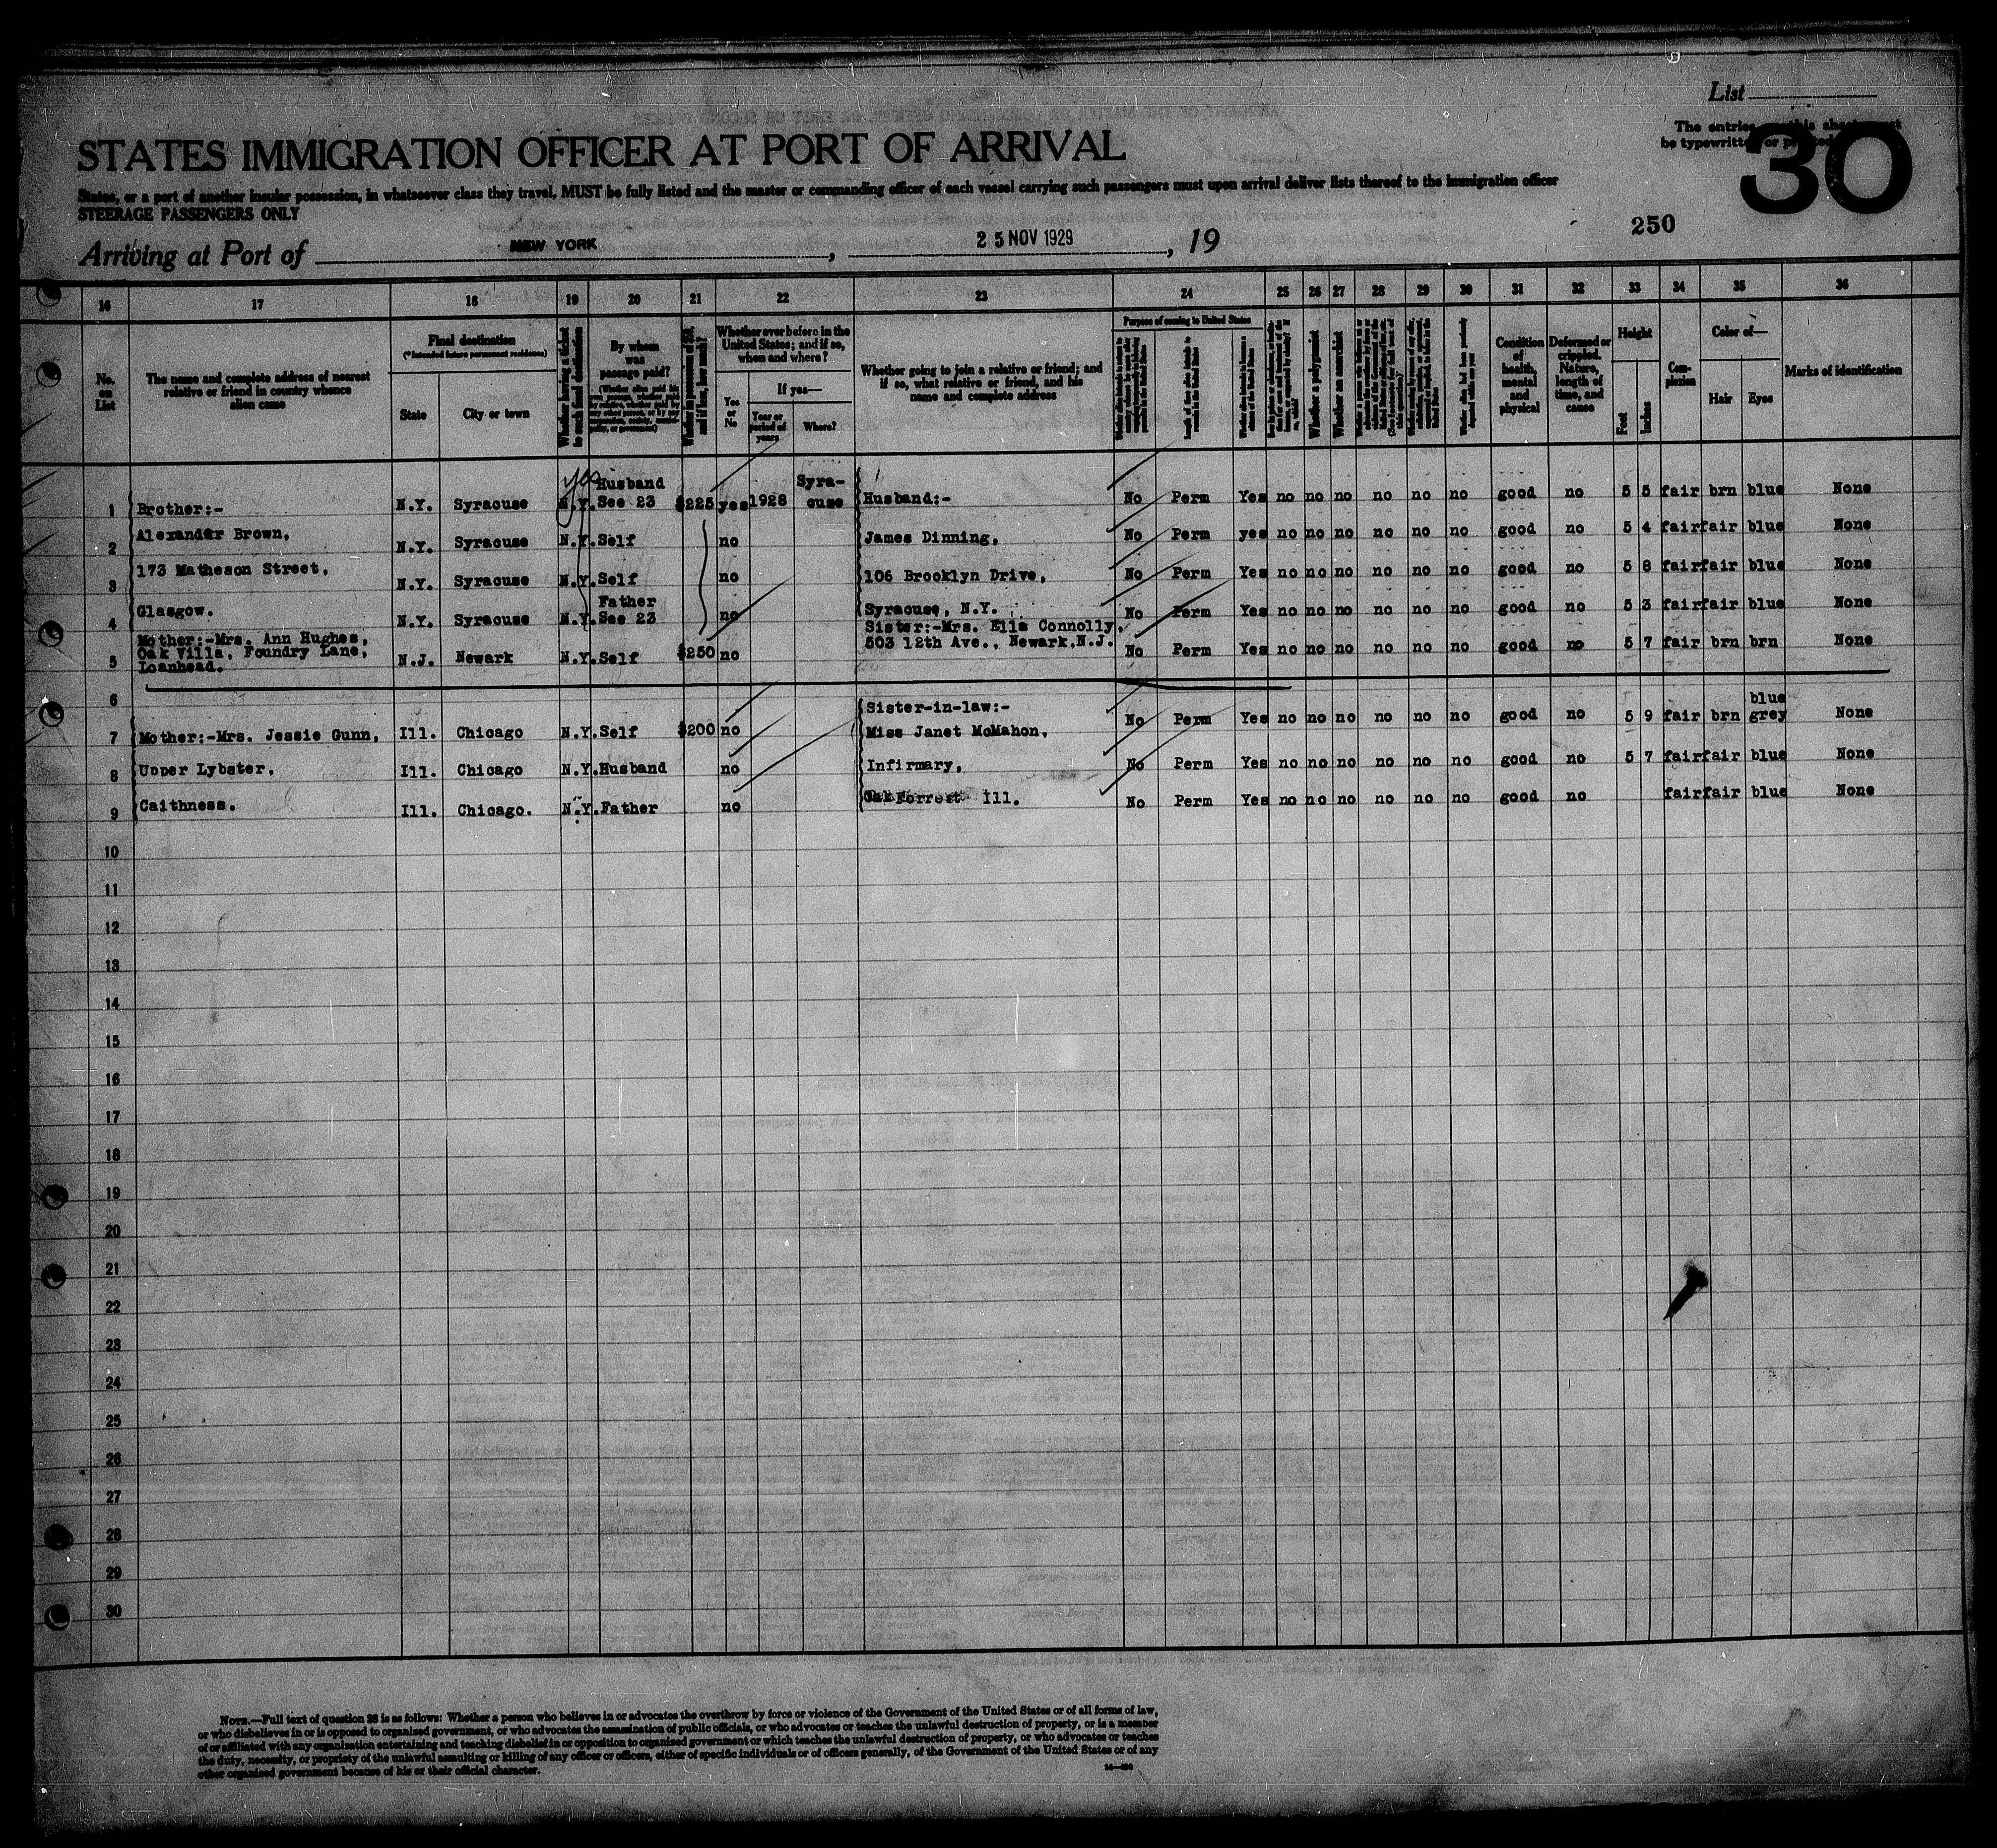 List
The entries on this sheet must
be typewritten or printed
30
STATES IMMIGRATION OFFICER AT PORT OF ARRIVAL
States, or a part of another insular possession, in whatsoever class they travel, MUST be fully listed and the master or commanding officer of each vessel carrying such passengers must upon arrival deliver lists thereof to the immigration officer
STEERAGE PASSENGERS ONLY
250
Arriving at Port of NEW YORK, 25 NOV 1929, 19
16 17 18 19 20 21 22 23 24 25 26 27 28 29 30 31 32 33 34 35 36
No. on List
The name and complete address of nearest relative or friend in country whence alien came
Final destination
(*Intended future permanent residence)
State
City or town
Whether having a ticket to such final destination
By whom was passage paid?
Whether ever before in the United States; and if so, when and where?
Yes or No
If yes—
Year or period of years
Where?
Whether going to join a relative or friend; and if so, what relative or friend, and his name and complete address
Purpose of coming to United States
Whether a polygamist
Whether an anarchist
Condition of health, mental and physical
Deformed or crippled. Nature, length of time, and cause
Height
Feet
Inches
Complexion
Color of—
Hair
Eyes
Marks of identification
yes Husband Syra-
1 Brother:- N.Y. Syracuse N.Y. See 23 $225 yes 1928 cuse Husband:- No Perm Yes no no no no no no good no 5 5 fair brn blue None
2 Alexander Brown, N.Y. Syracuse N.Y. Self no James Dinning, No Perm yes no no no no no no good no 5 4 fair fair blue None
3 173 Matheson Street, N.Y. Syracuse N.Y. Self no 106 Brooklyn Drive, No Perm Yes no no no no no no good no 5 8 fair fair blue None
Father
4 Glasgow. N.Y. Syracuse N.Y. See 23 no Syracuse, N.Y. No Perm Yes no no no no no no good no 5 3 fair fair blue None
Mother:-Mrs. Ann Hughes, Sister:-Mrs. Ella Connolly,
Oak Villa, Foundry Lane, 503 12th Ave., Newark,N.J.
5 Loanhead. N.J. Newark N.Y. Self $250 no No Perm Yes no no no no no no good no 5 7 fair brn brn None
6 Sister-in-law:- blue
7 Mother:-Mrs. Jessie Gunn, Ill. Chicago N.Y. Self $200 no Miss Janet McMahon, No Perm Yes no no no no no no good no 5 9 fair brn grey None
8 Upper Lybster, Ill. Chicago N.Y. Husband no Infirmary, No Perm Yes no no no no no no good no 5 7 fair fair blue None
9 Caithness. Ill. Chicago. N.Y. Father no Oak Forrest Ill. No Perm Yes no no no no no no good no fair fair blue None
10
11
12
13
14
15
16
17
18
19
20
21
22
23
24
25
26
27
28
29
30
NOTE.—Full text of question 28 is as follows: Whether a person who believes in or advocates the overthrow by force or violence of the Government of the United States or of all forms of law,
or who disbelieves in or is opposed to organized government, or who advocates the assassination of public officials, or who advocates or teaches the unlawful destruction of property, or is a member
of or affiliated with any organization entertaining and teaching disbelief in or opposition to organized government or which teaches the unlawful destruction of property, or who advocates or teaches
the duty, necessity, or propriety of the unlawful assaulting or killing of any officer or officers, either of specific individuals or of officers generally, of the Government of the United States or of any
other organized government because of his or their official character.